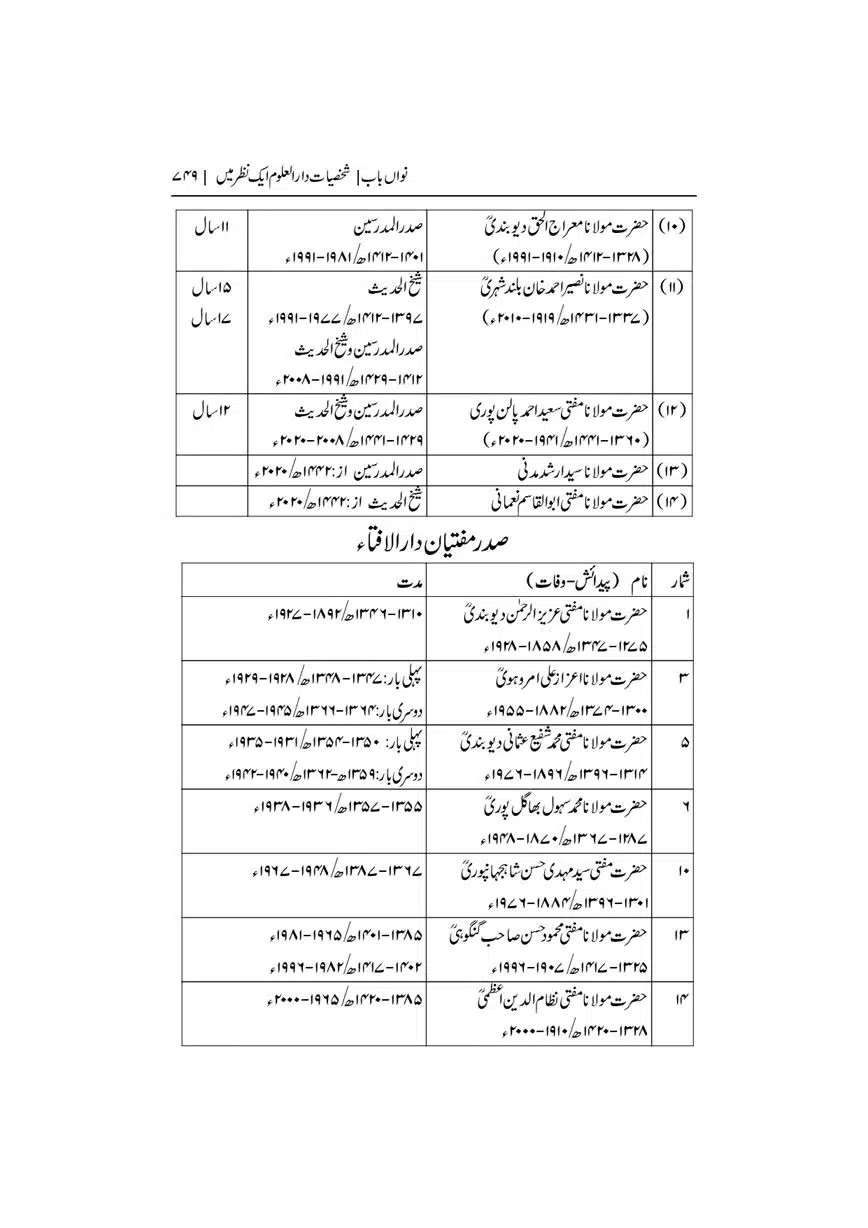 نواں باب | شخصیات دارالعلوم ایک نظر میں | ۷۴۹
(۱۰) حضرت مولانا معراج الحق دیوبندیؒ صدرالمدرسین ۱۱سال
(۱۳۲۸-۱۴۱۲ھ/۱۹۱۰-۱۹۹۱ء) ۱۴۰۱-۱۴۱۲ھ/۱۹۸۱-۱۹۹۱ء
(۱۱) حضرت مولانا نصیر احمد خان بلند شہریؒ شیخ الحدیث ۱۵سال
(۱۳۳۷-۱۴۳۱ھ/۱۹۱۹-۲۰۱۰ء) ۱۳۹۷-۱۴۱۲ھ/۱۹۷۷-۱۹۹۱ء ۱۷سال
صدرالمدرسین و شیخ الحدیث
۱۴۱۲-۱۴۲۹ھ/۱۹۹۱-۲۰۰۸ء
(۱۲) حضرت مولانا مفتی سعید احمد پالن پوری صدرالمدرسین و شیخ الحدیث ۱۲سال
(۱۳۶۰-۱۴۴۱ھ/۱۹۴۱-۲۰۲۰ء) ۱۴۲۹-۱۴۴۱ھ/۲۰۰۸-۲۰۲۰ء
(۱۳) حضرت مولانا سید ارشد مدنی صدرالمدرسین از:۱۴۴۲ھ/۲۰۲۰ء
(۱۴) حضرت مولانا مفتی ابوالقاسم نعمانی شیخ الحدیث از:۱۴۴۲ھ/۲۰۲۰ء
صدر مفتیان دارالافتاء
شمار نام (پیدائش-وفات) مدت
۱ حضرت مولانا مفتی عزیز الرحمٰن دیوبندیؒ ۱۳۱۰-۱۳۴۶ھ/۱۸۹۲-۱۹۲۷ء
۱۲۷۵-۱۳۴۷ھ/۱۸۵۸-۱۹۲۸ء
۳ حضرت مولانا اعزاز علی امروہویؒ پہلی بار:۱۳۴۷-۱۳۴۸ھ/۱۹۲۸-۱۹۲۹ء
۱۳۰۰-۱۳۷۴ھ/۱۸۸۲-۱۹۵۵ء دوسری بار:۱۳۶۴-۱۳۶۶ھ/۱۹۴۵-۱۹۴۷ء
۵ حضرت مولانا مفتی محمد شفیع عثمانی دیوبندیؒ پہلی بار: ۱۳۵۰-۱۳۵۴ھ/۱۹۳۱-۱۹۳۵ء
۱۳۱۴-۱۳۹۶ھ/۱۸۹۶-۱۹۷۶ء دوسری بار:۱۳۵۹ھ-۱۳۶۲ھ/۱۹۴۰-۱۹۴۲ء
۶ حضرت مولانا محمد سہول بھاگل پوریؒ ۱۳۵۵-۱۳۵۷ھ/۱۹۳۶-۱۹۳۸ء
۱۲۸۷-۱۳۶۷ھ/۱۸۷۰-۱۹۴۸ء
۱۰ حضرت مفتی سید مہدی حسن شاہجہانپوریؒ ۱۳۶۷-۱۳۸۷ھ/۱۹۴۸-۱۹۶۷ء
۱۳۰۱-۱۳۹۶ھ/۱۸۸۴-۱۹۷۶ء
۱۳ حضرت مولانا مفتی محمود حسن صاحب گنگوہیؒ ۱۳۸۵-۱۴۰۱ھ/۱۹۶۵-۱۹۸۱ء
۱۳۲۵-۱۴۱۷ھ/۱۹۰۷-۱۹۹۶ء ۱۴۰۲-۱۴۱۷ھ/۱۹۸۲-۱۹۹۶ء
۱۴ حضرت مولانا مفتی نظام الدین اعظمیؒ ۱۳۸۵-۱۴۲۰ھ/۱۹۶۵-۲۰۰۰ء
۱۳۲۸-۱۴۲۰ھ/۱۹۱۰-۲۰۰۰ء